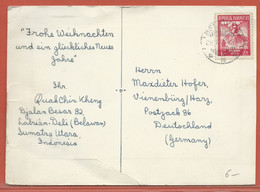 "Frohe Weihnachten
und ein glückliches Neues
Jahr"
Ihr
Quah Chin Kheng
Djalan Besar 82
Labuan-Deli (Belawan)
Sumatra Utara,
Indonesia
Herrn
Maxdieter Hofer,
Vienenburg/Harz,
Postfach 86
Deutschland
(Germany)
6-